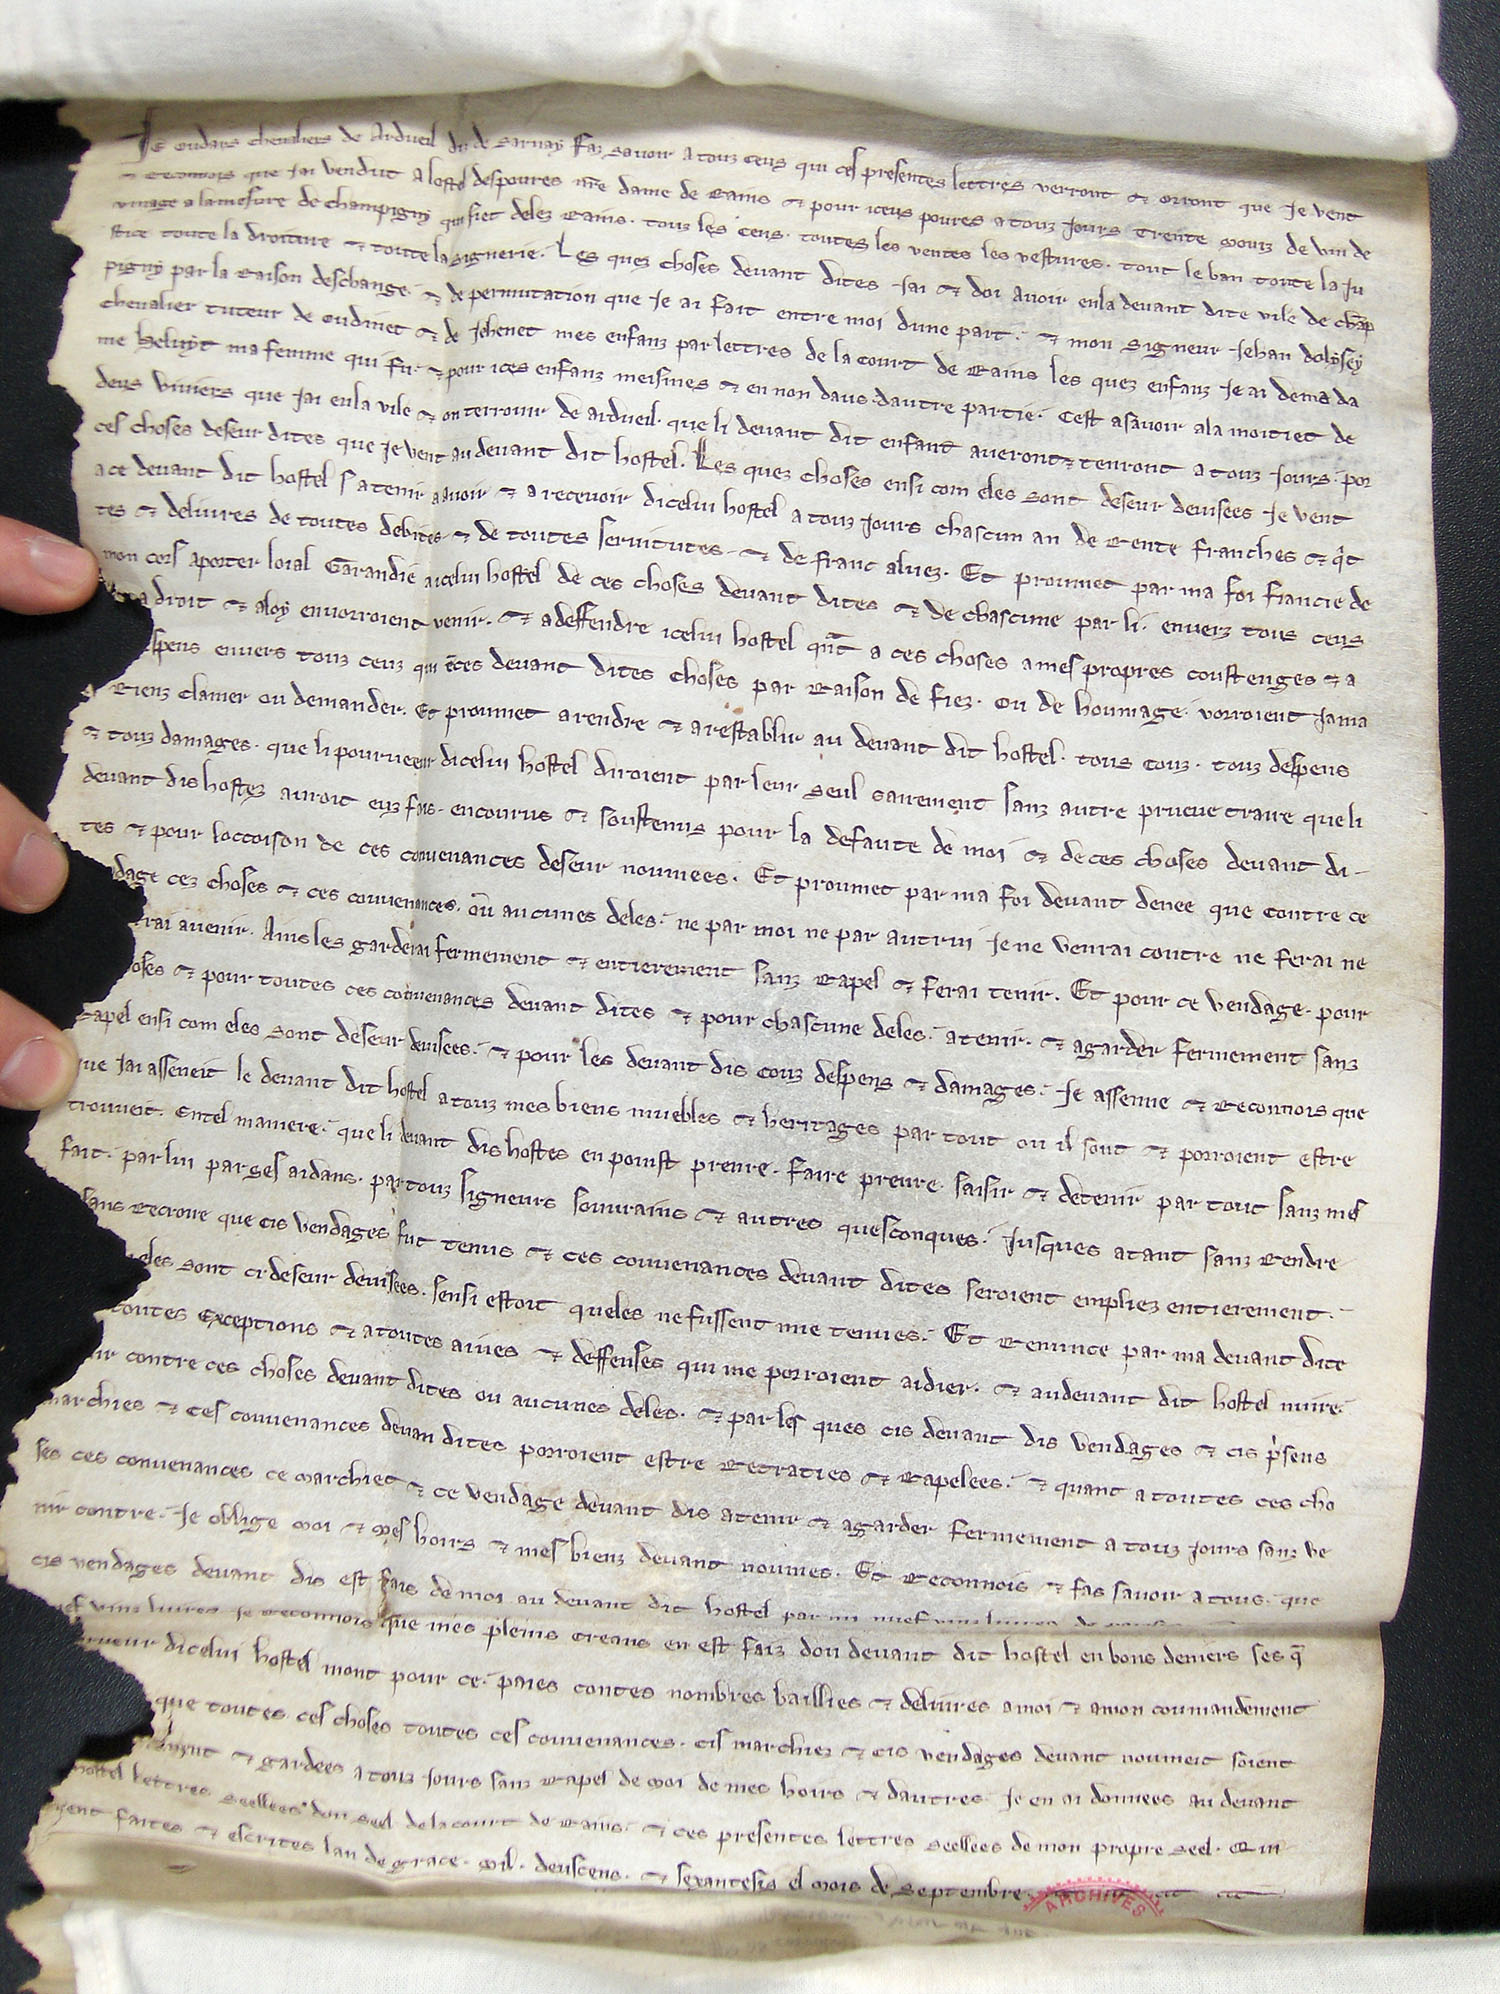 Je oudars chevaliers de Ardueil dis de Sarnay Faz savoir a touz ceus qui ces presentes lettres verront & orront que Je vent
& reconnois que jai vendut a lostel des poures nr̄e dame de Rains & pour iceus poures a touz jours Trente mouiz de vin de
vinage a la mesure de champigny qui siet delez Rains. touz les cens. toutes les ventes les vestures. tout le ban toute la Ju
stice toute la droiture & toute la signerie. Les quez choses devant dites Jai & doi avoir en la devant dite vile de chāp
pigny par la Raison deschange. & de permutation que Je ai fait entre moi dune part. & mon signeur Jehan dolysey
chevalier tuteur de oudinet & de Jehenet mes enfanz par lettres de la court de Rains les quez enfanz Je ai de mā da
me Heluyt ma femme qui fu. & pour ices enfanz meismes & en non daus. dautre partie. Cest asavoir a la moitiet de
deus viviers que Jai en la vile & on terrouir de ardueil. que li devant dit enfant averont & tenront a touz Jours. por
ces choses deseur dites que Je vent au devant dit hostel. Les quez choses ensi com eles sont deseur devisees Je vent
a ce devant dit hostel s a tenir a avoir & a recevoir dicelui hostel a touz jours chascun an de Rente franches & q̄t
tes & delivres de toutes debites. & de toutes servitutes. & de franc aluez. Et proumet par ma foi fiancie de
mon cors a porter loial Garandie a icelui hostel de ces choses devant dites & de chascune par li. envers tous ceus
a droit & a loy en vorroient venir. & a deffendre icelui hostel qn̄t a ces choses a mes propres coustenges & a
spens envers touz ceuz qui ēces devant dites choses par Raison de fiez. ou de houmage. vorroient Jama
Rienz clamer ou demander. Et proumet a rendre & a restablir au devant dit hostel. tous couz. touz despens
& touz damages. que li pourveeur dicelui hostel diroient par leur seul sairement sanz autre prueve traire que li
devant dis hostez auroit euz fais. encourus & soustenus pour la defaute de moi & de ces choses devant di-
tes & pour loccoison de ces convenances deseur noumees. Et proumet par ma foi devant denee que contre ce
dage cez choses & ces convenances. ou aucunes deles. ne par moi ne par autrui Je ne venrai contre ne ferai ne
rai avenir. Ains les garderai fermement & entierement sanz Rapel & ferai tenir. Et pour ce vendage. pour
oses & pour toutes ces convenances devant dites & pour chascune deles. a tenir. & a garder fermement sanz
Rapel ensi com eles sont deseur devisees. & pour les devant dis couz despens & damages. Je assenne & Reconnois que
que Jai asseneit le devant dit hostel a touz mes biens muebles & heritages par tout ou il sont & porroient estre
trouveit. En tel maniere. que li devant dis hostes en pouist prenre. faire prenre. saisir & detenir par tout sanz mes
fait. par lui par ses aidans. par touz signeurs souvrains & autres quesconques. Jusques a tant sanz Rendre
sans Recroire que cis vendages fut tenus & ces convenances devant dites seroient empliez entierement.
eles sont ci deseur devisees. sensi estoit queles ne fussent mie tenues. Et Renunce par ma devant dite
toutes exceptions & a toutes aiues & deffenses qui me porroient aidier. & au devant dit hostel nuire.
ir contre ces choses devant dites ou aucunes deles. & par les ques cis devant dis vendages & cis p̄sens
marchies & ces convenances devan dites porroient estre Retraties & Rapelees. & quant a toutes ces cho
ses ces convenances ce marchiet & ce vendage devant dis a tenir & a garder fermement a touz jours sanz ve
nir contre. Je oblige moi & mes hoirs & mes bienz devant noumes. Et Reconnois & fas savoir a tous. que
cis vendages devant dis est fais de moi au devant dit hostel par mi
Je Reconnois que mes pleins creans en est faiz dou devant dit hostel en bons deniers ses q̄
dicelui hostel mont pour ce. paies contes nombres baillies & delivres a moi & a mon coumandement
que toutes ces choses toutes ces convenances. cis marchiez & cis vendages devant noumeit soient
& gardees a touz Jours sanz Rapel de moi de mes hoirs & dautres Je en ai donnees au devant
hostel lettres seellees dou seel de la court de Rains. & ces presentes lettres seellees de mon propre seel. Qui
faites & escrites lan de grace. mil. deuscens. & sexantesis el mois de Septembre.
ARCHIVES